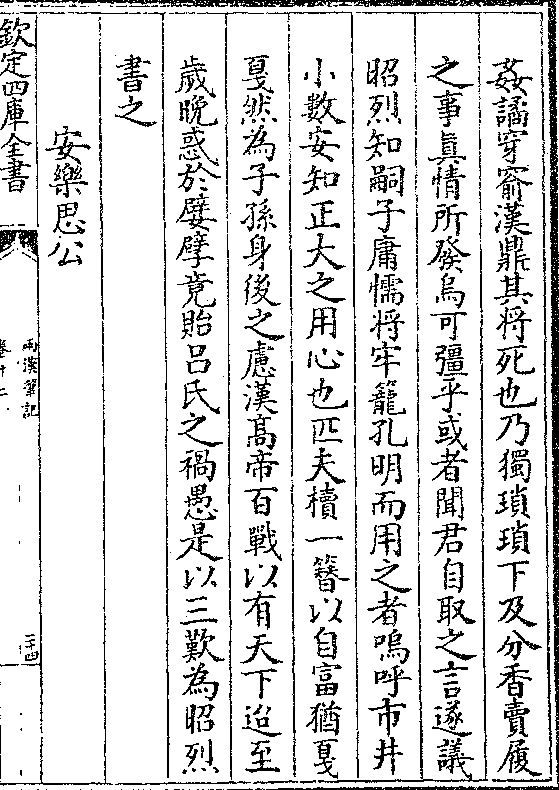 姦譎穿窬漢鼎其將死也乃獨瑣瑣下及分香賣履
之事真情所發烏可彊乎或者聞君自取之言遂議
昭烈知嗣子庸懦將牢籠孔明而用之者嗚呼市井
小數安知正大之用心也匹夫櫝一簪以自富猶戛
戛然為子孫身後之慮漢髙帝百戰以有天下迨至
歳晩惑於嬖孽竟貽吕氏之禍愚是以三歎為昭烈
書之
安樂思公
欽定四庫全書
兩漢筆記
卷十二
二十四